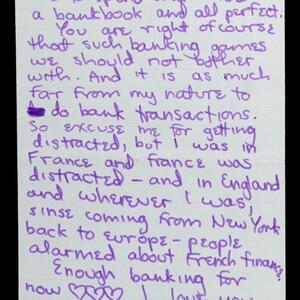 a bankbook and all perfect.
You are right ofcourse
that such banking games
we should not bother
with. And it is as much
far from my nature to
do bank transactions.
So excuse me for getting
distracted, but I was in
France and france was
distracted - and in England
and wherever I was,
sinse coming from New York
back to europe - people
alarmed about French finance.
Enough banking for
now ♡♡♡♡ I love you